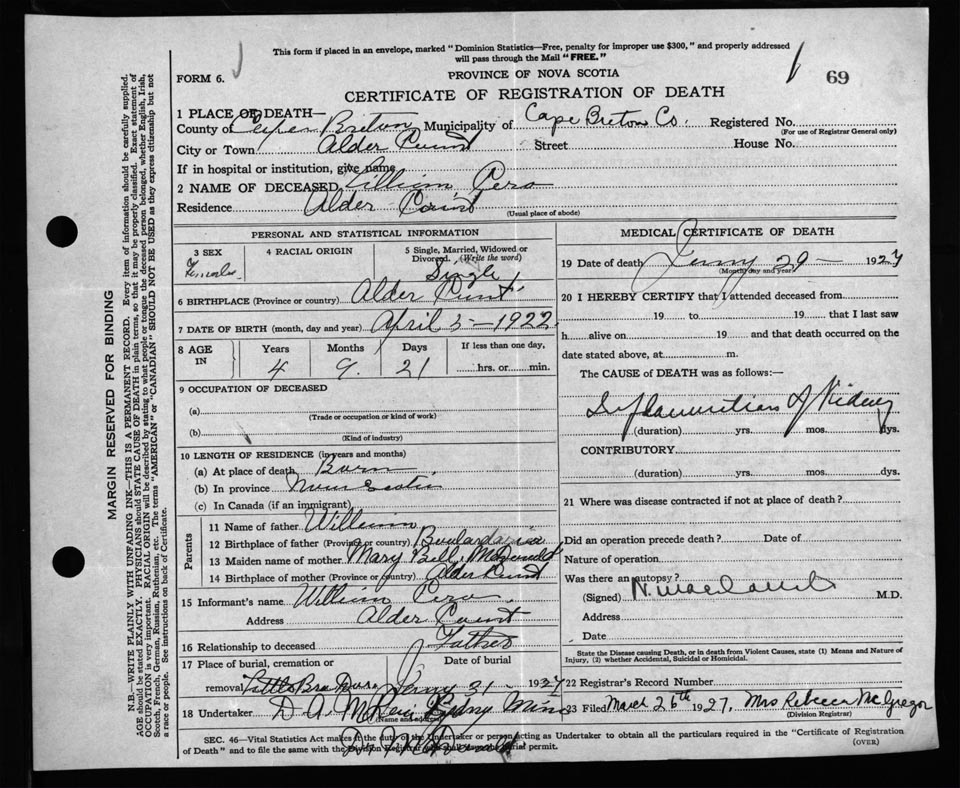 This form if placed in an envelope, marked "Dominion Statistics—Free, penalty for improper use $300," and properly addressed
will pass through the Mail "FREE."
FORM 6.
PROVINCE OF NOVA SCOTIA
69
CERTIFICATE OF REGISTRATION OF DEATH
1 PLACE OF DEATH—
County of Cape Breton Municipality of Cape Breton Co. Registered No.
(For use of Registrar General only)
City or Town Alder Point Street House No.
If in hospital or institution, give name
2 NAME OF DECEASED Lilliam Pero
Residence Alder Point
(Usual place of abode)
PERSONAL AND STATISTICAL INFORMATION
3 SEX
Female
4 RACIAL ORIGIN
5 Single, Married, Widowed or
Divorced. (Write the word)
Single
6 BIRTHPLACE (Province or country) Alder Point
7 DATE OF BIRTH (month, day and year) April 3—1922
8 AGE IN
Years Months Days If less than one day,
4 9 21 hrs. or min.
9 OCCUPATION OF DECEASED
(a)
(Trade or occupation or kind of work)
(b)
(Kind of industry)
10 LENGTH OF RESIDENCE (in years and months)
(a) At place of death Born
(b) In province Nova Scotia
(c) In Canada (if an immigrant)
Parents
11 Name of father William
12 Birthplace of father (Province or country) Boulardarie
13 Maiden name of mother Mary Bell McDonald
14 Birthplace of mother (Province or country) Alder Point
15 Informant's name William Pero
Address Alder Point
16 Relationship to deceased Father
17 Place of burial, cremation or Date of burial
removal Little Bras d'Or 31— 1927
18 Undertaker D. A. Sydney Mines
(Name and address)
MEDICAL CERTIFICATE OF DEATH
19 Date of death 29— 1927
(Month, day and year)
20 I HEREBY CERTIFY that I attended deceased from
19 to 19 that I last saw
h alive on 19 and that death occurred on the
date stated above, at m.
The CAUSE of DEATH was as follows:—
Inflammation of Kidney
(duration) yrs. mos. dys.
CONTRIBUTORY
(duration) yrs. mos. dys.
21 Where was disease contracted if not at place of death?
Did an operation precede death? Date of
Nature of operation
Was there an autopsy?
(Signed) M.D.
Address
Date
State the Disease causing Death, or in death from Violent Causes, state (1) Means and Nature of
Injury, (2) whether Accidental, Suicidal or Homicidal.
22 Registrar's Record Number
23 Filed March 26th 1927, Mrs Rebecca McGregor
(Division Registrar)
SEC. 46—Vital Statistics Act makes it the duty of the Undertaker or person acting as Undertaker to obtain all the particulars required in the "Certificate of Registration
of Death" and to file the same with the Division Registrar who shall issue the burial permit.
(OVER)
MARGIN RESERVED FOR BINDING
N.B.—WRITE PLAINLY WITH UNFADING INK—THIS IS A PERMANENT RECORD. Every item of information should be carefully supplied.
AGE should be stated EXACTLY. PHYSICIANS should STATE CAUSE OF DEATH in plain terms, so that it may be properly classified. Exact statement of
OCCUPATION is very important. RACIAL ORIGIN will be described by stating to what people or tongue the deceased person belonged, whether English, Irish,
Scotch, French, German, Russian, Ruthenian, etc. The terms "AMERICAN" or "CANADIAN" SHOULD NOT BE USED as they express citizenship but not
a race or people. See instructions on back of Certificate.